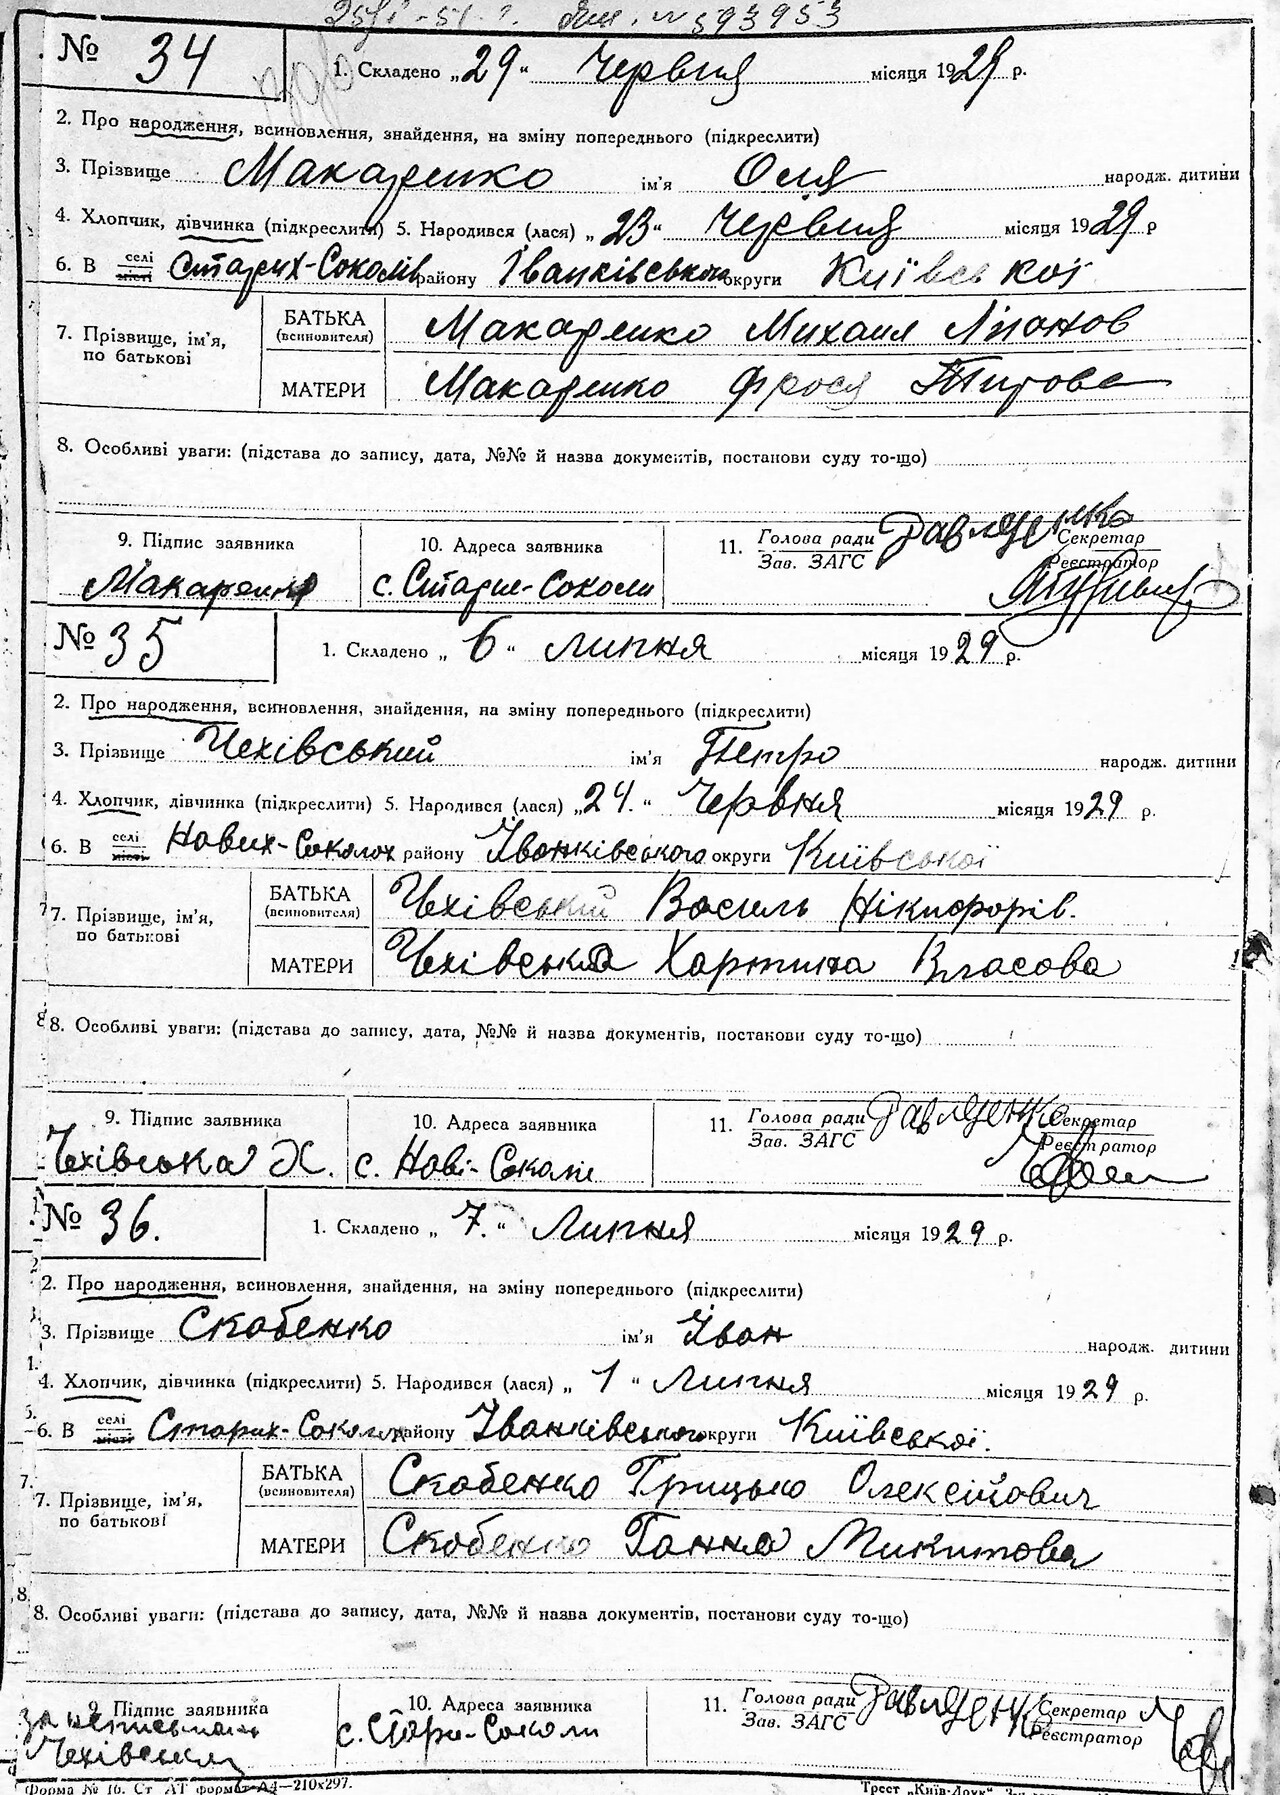 № 34 1. Складено „29" Червня місяця 1929 р.
2. Про народження, всиновлення, знайдення, на зміну попереднього (підкреслити)
3. Прізвище Макаренко ім'я Оля народж. дитини
4. Хлопчик, дівчинка (підкреслити) 5. Народився (лася) „23" Червня місяця 1929 р
6. В селі місті Старих-Соколів району Іванківського округи Київської
7. Прізвище, ім'я, по батькові
БАТЬКА (всиновителя) Макаренко Михаил
МАТЕРИ Макаренко Фрося Титова
8. Особливі уваги: (підстава до запису, дата, №№ й назва документів, постанови суду то-що)
9. Підпис заявника 10. Адреса заявника 11. Голова ради Зав. ЗАГС Секретар Реєстратор
Макаренко с. Старие-Соколи
№ 35 1. Складено „ 6 " липня місяця 1929 р.
2. Про народження, всиновлення, знайдення, на зміну попереднього (підкреслити)
3. Прізвище Чехівський ім'я Петро народж. дитини
4. Хлопчик, дівчинка (підкреслити) 5. Народився (лася) „24." Червня місяця 1929 р.
6. В селі місті Нових-Соколах району Іванківського округи Київської
7. Прізвище, ім'я, по батькові
БАТЬКА (всиновителя) Чехівський Василь Нікифорів.
МАТЕРИ Чехівська Харитина Власова
8. Особливі уваги: (підстава до запису, дата, №№ й назва документів, постанови суду то-що)
9. Підпис заявника 10. Адреса заявника 11. Голова ради Зав. ЗАГС Секретар Реєстратор
Чехівська Х. с. Нові-Соколи
№ 36. 1. Складено „ 7. " Липня місяця 1929 р.
2. Про народження, всиновлення, знайдення, на зміну попереднього (підкреслити)
3. Прізвище Скобенко ім'я Іван народж. дитини
4. Хлопчик, дівчинка (підкреслити) 5. Народився (лася) „ 1 " Липня місяця 1929 р.
6. В селі місті Старих-Соколах району Іванківського округи Київської.
7. Прізвище, ім'я, по батькові
БАТЬКА (всиновителя) Скобенко Грицько Олексійович
МАТЕРИ Скобенко Ганна Микитова
8. Особливі уваги: (підстава до запису, дата, №№ й назва документів, постанови суду то-що)
9. Підпис заявника 10. Адреса заявника 11. Голова ради Зав. ЗАГС Секретар Реєстратор
с. Стари-Соколи
Форма № 16. Ст АТ формат А4—210x297. Трест „Київ-Друк"